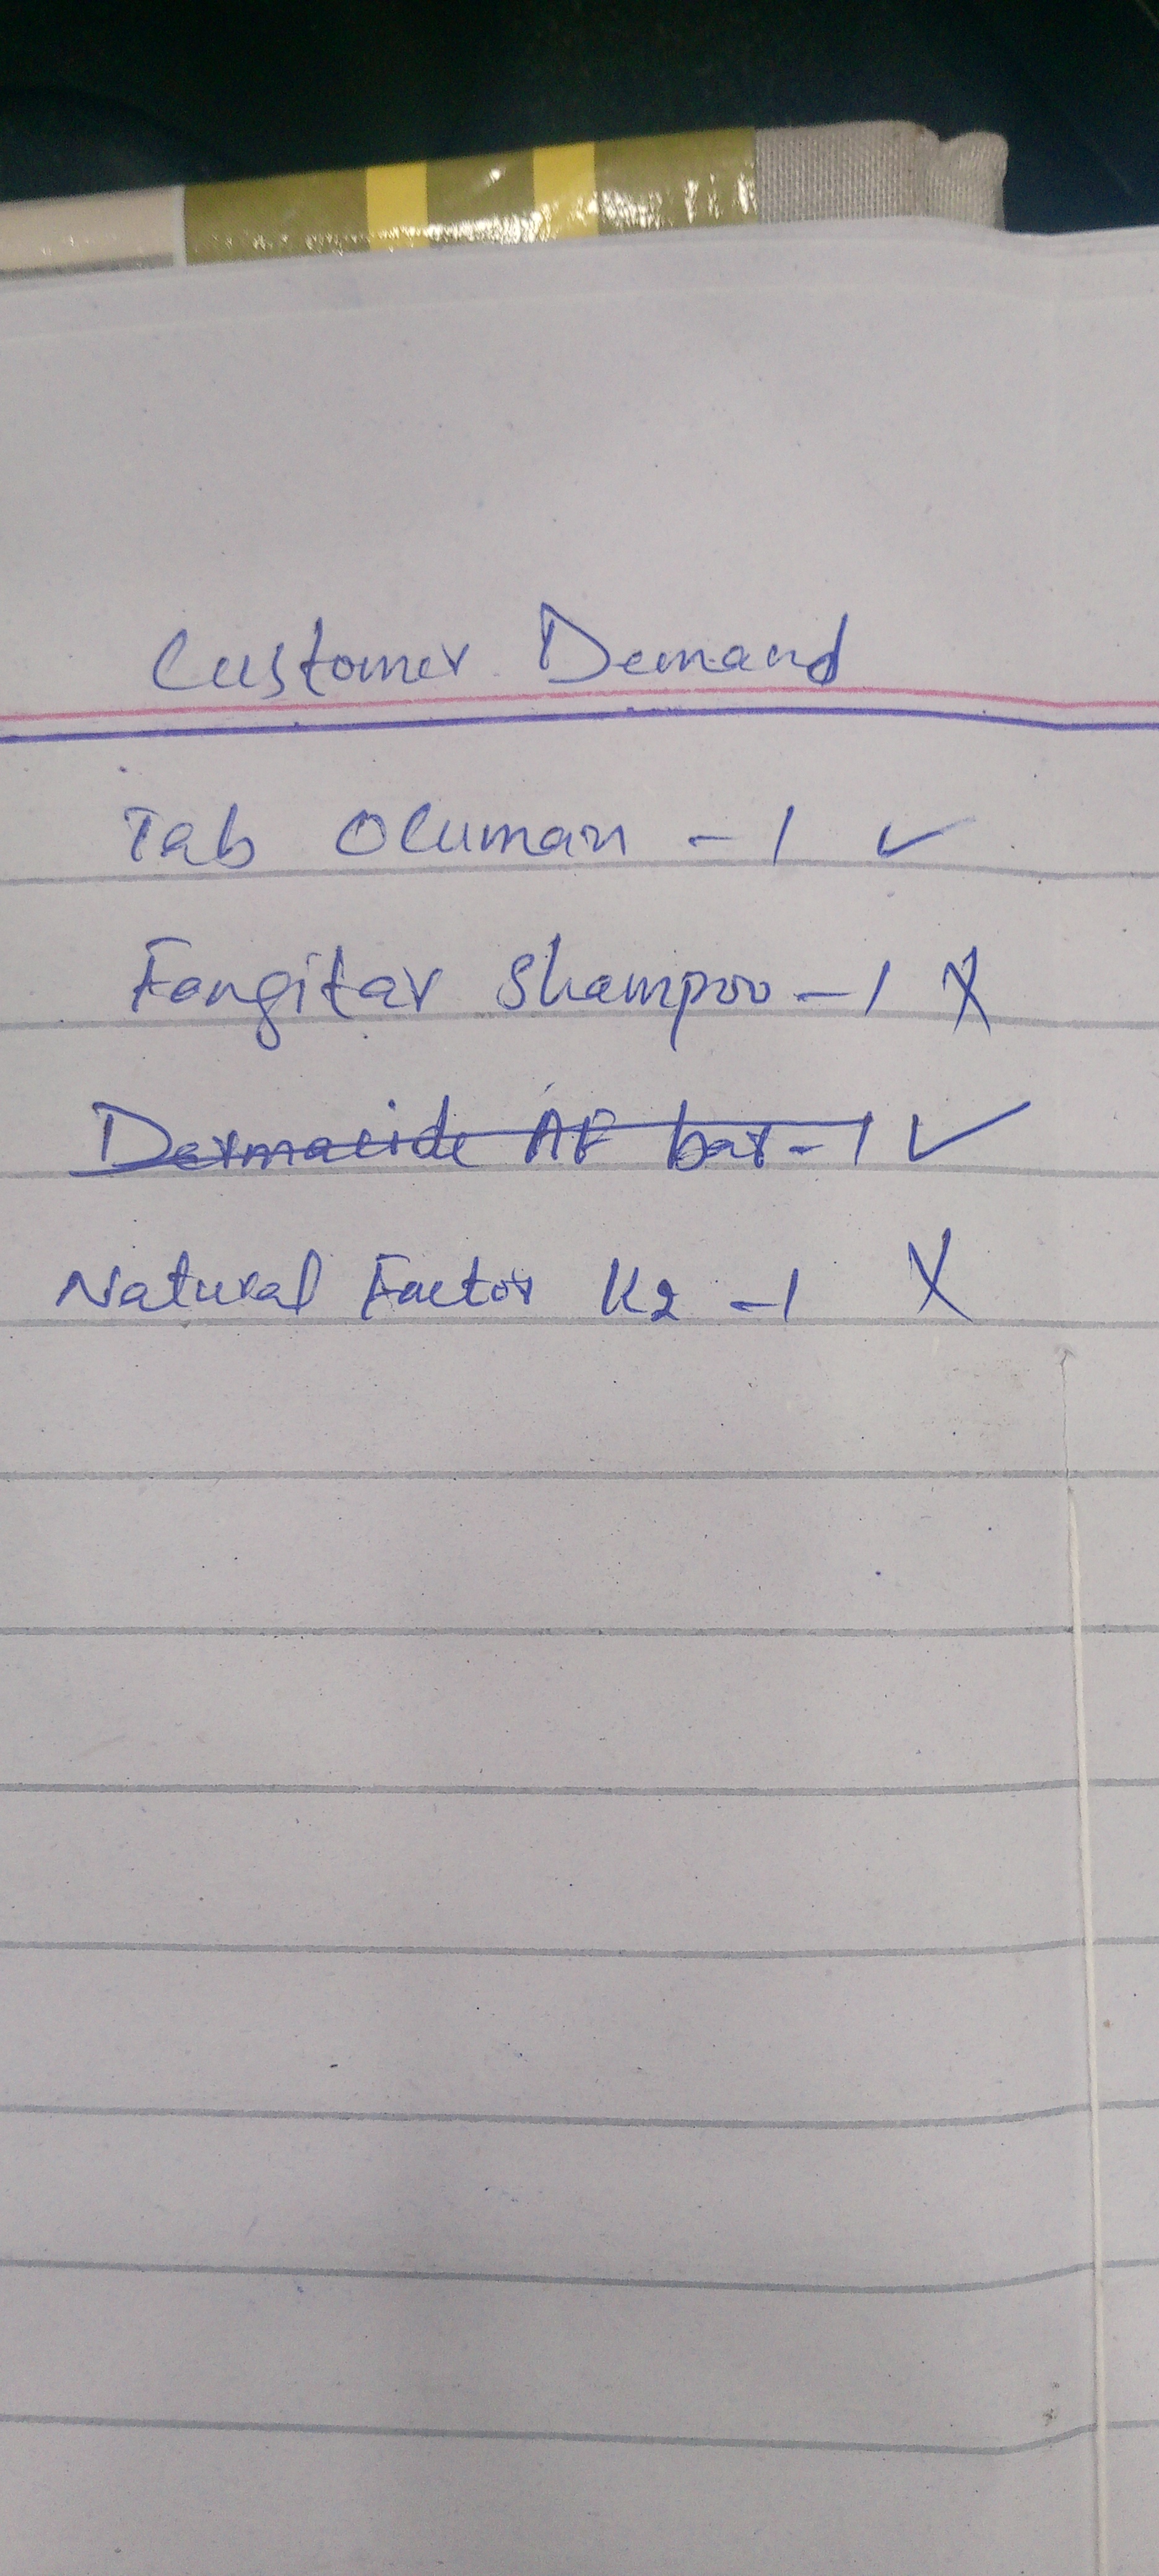 Customer Demand
Tab Oluman - 1 ✓
Fongitar Shampoo - 1 X
Dermacide AF bar - 1 ✓
Natural Factor K2 - 1 X